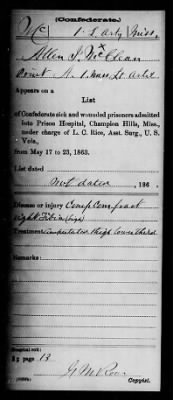 (Confederate.)
Mc 1 L Arty Miss.
Allen J. McClean
A. 1 Miss. Lt Artil
Appears on a
List
of Confederate sick and wounded prisoners admitted
into Prison Hospital, Champion Hills, Miss.,
under charge of L. C. Rice, Asst. Surg., U. S.
Vols.,
from May 17 to 23, 1863.
List dated
Not dated, 186 .
Disease or injury Comp Com fract
right Tibia
Treatment amputated thigh lower third
Remarks:
Hospital rol:
page 13
Copyist.